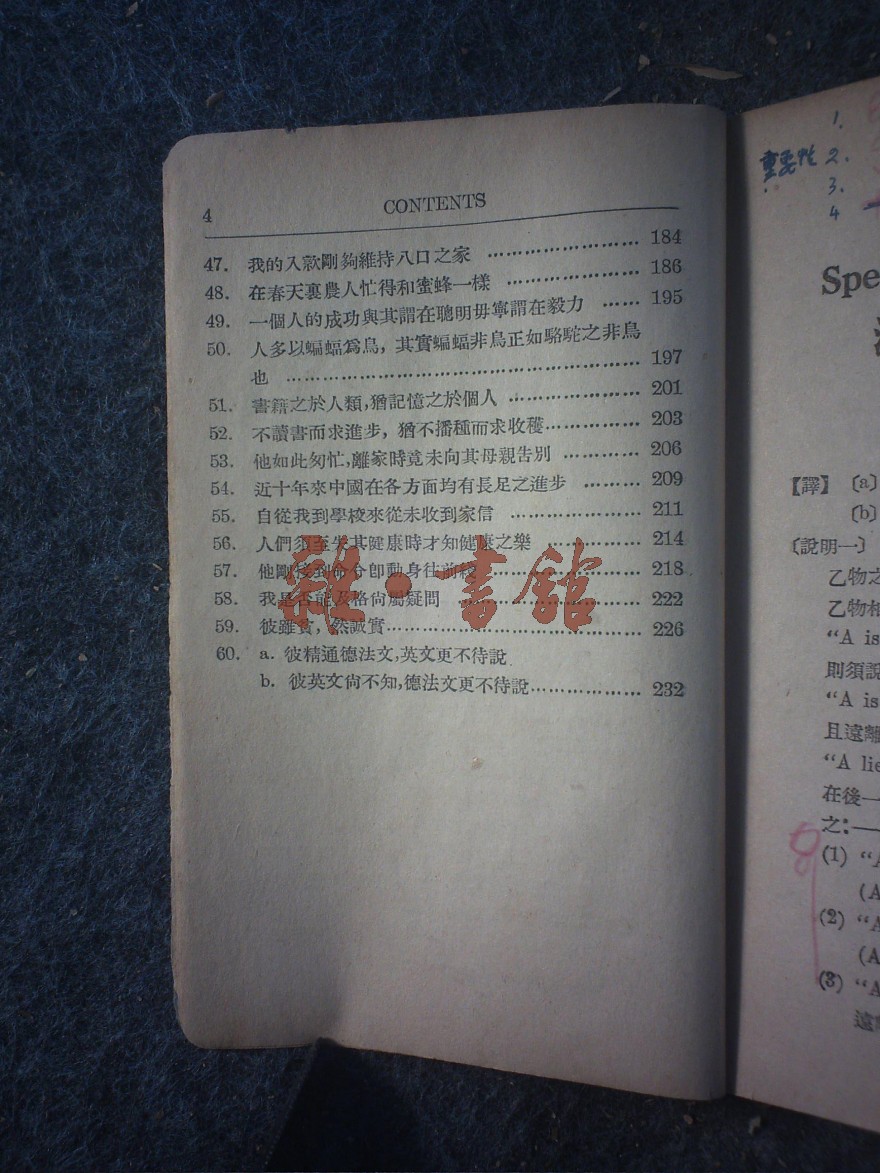 4 CONTENTS
47. 我的入款剛夠維持八口之家 …………………… 184
48. 在春天裏農人忙得和蜜蜂一樣 ………………… 186
49. 一個人的成功與其謂在聰明毋寧謂在毅力 …… 195
50. 人多以蝙蝠爲鳥, 其實蝙蝠非鳥正如駱駝之非鳥
也 ………………………………………………… 197
51. 書籍之於人類,猶記憶之於個人 ………………… 201
52. 不讀書而求進步, 猶不播種而求收穫…………… 203
53. 他如此匆忙,離家時竟未向其母親告別 ………… 206
54. 近十年來中國在各方面均有長足之進步 ……… 209
55. 自從我到學校來從未收到家信 ………………… 211
56. 人們須至失其健康時才知健康之樂 …………… 214
57. 他剛接到命令卽動身往前線 …………………… 218
58. 我是否能及格尙屬疑問 ………………………… 222
59. 彼雖貧, 然誠實………………………………… 226
60. a. 彼精通德法文,英文更不待說
b. 彼英文尙不知,德法文更不待說……………… 232
雜·書館
1.
重要性 2.
3.
4
Spe
【譯】 (a)
(b)
〔說明一〕
乙物之
乙物相
“A is
則須說
“A is
且遠離
“A lie
在後一
之:—
(1) “A
(A
(2) “A
(A
(3) “A